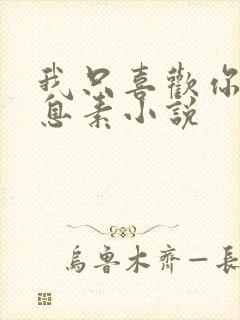 我只喜歡你
息素小說
烏魯木齊—長